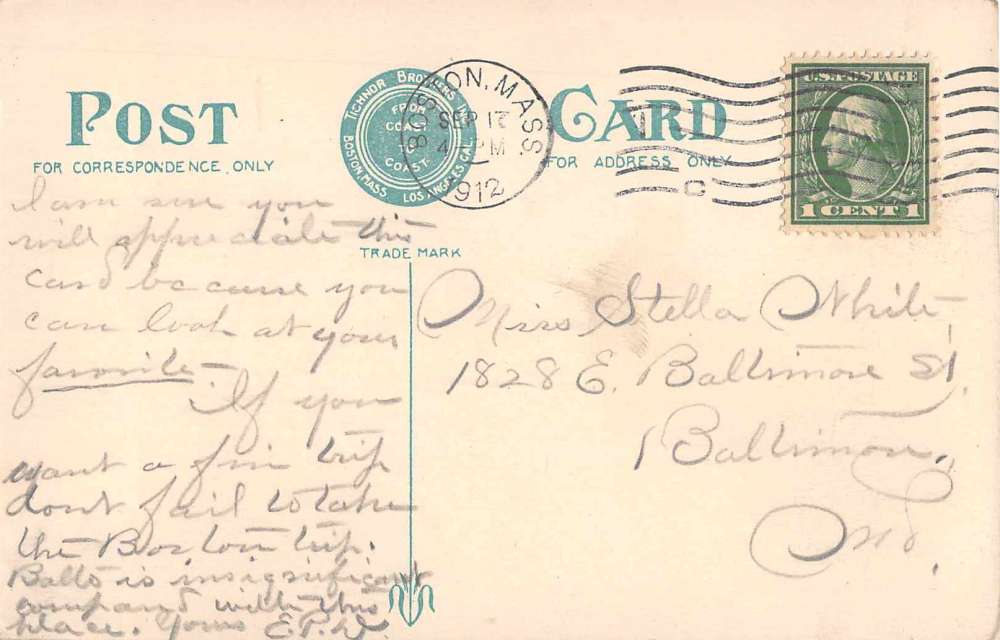 POST CARD
TICHNOR BROTHERS INC.
BOSTON, MASS. LOS ANGELES CAL.
FROM
COAST
TO
COAST
TRADE MARK
BOSTON, MASS
SEP 17
4 PM
1912
C
U.S. POSTAGE
1 CENT 1
FOR CORRESPONDENCE ONLY
FOR ADDRESS ONLY
I am sure you
will appreciate this
card because you
can look at your
favorite.
If you
want a fine trip
dont fail to take
the Boston trip.
Balto is insignificant
compared with this
place. Yours E.T.W.
Miss Stella White,
1828 E. Baltimore St.
Baltimore,
Md.